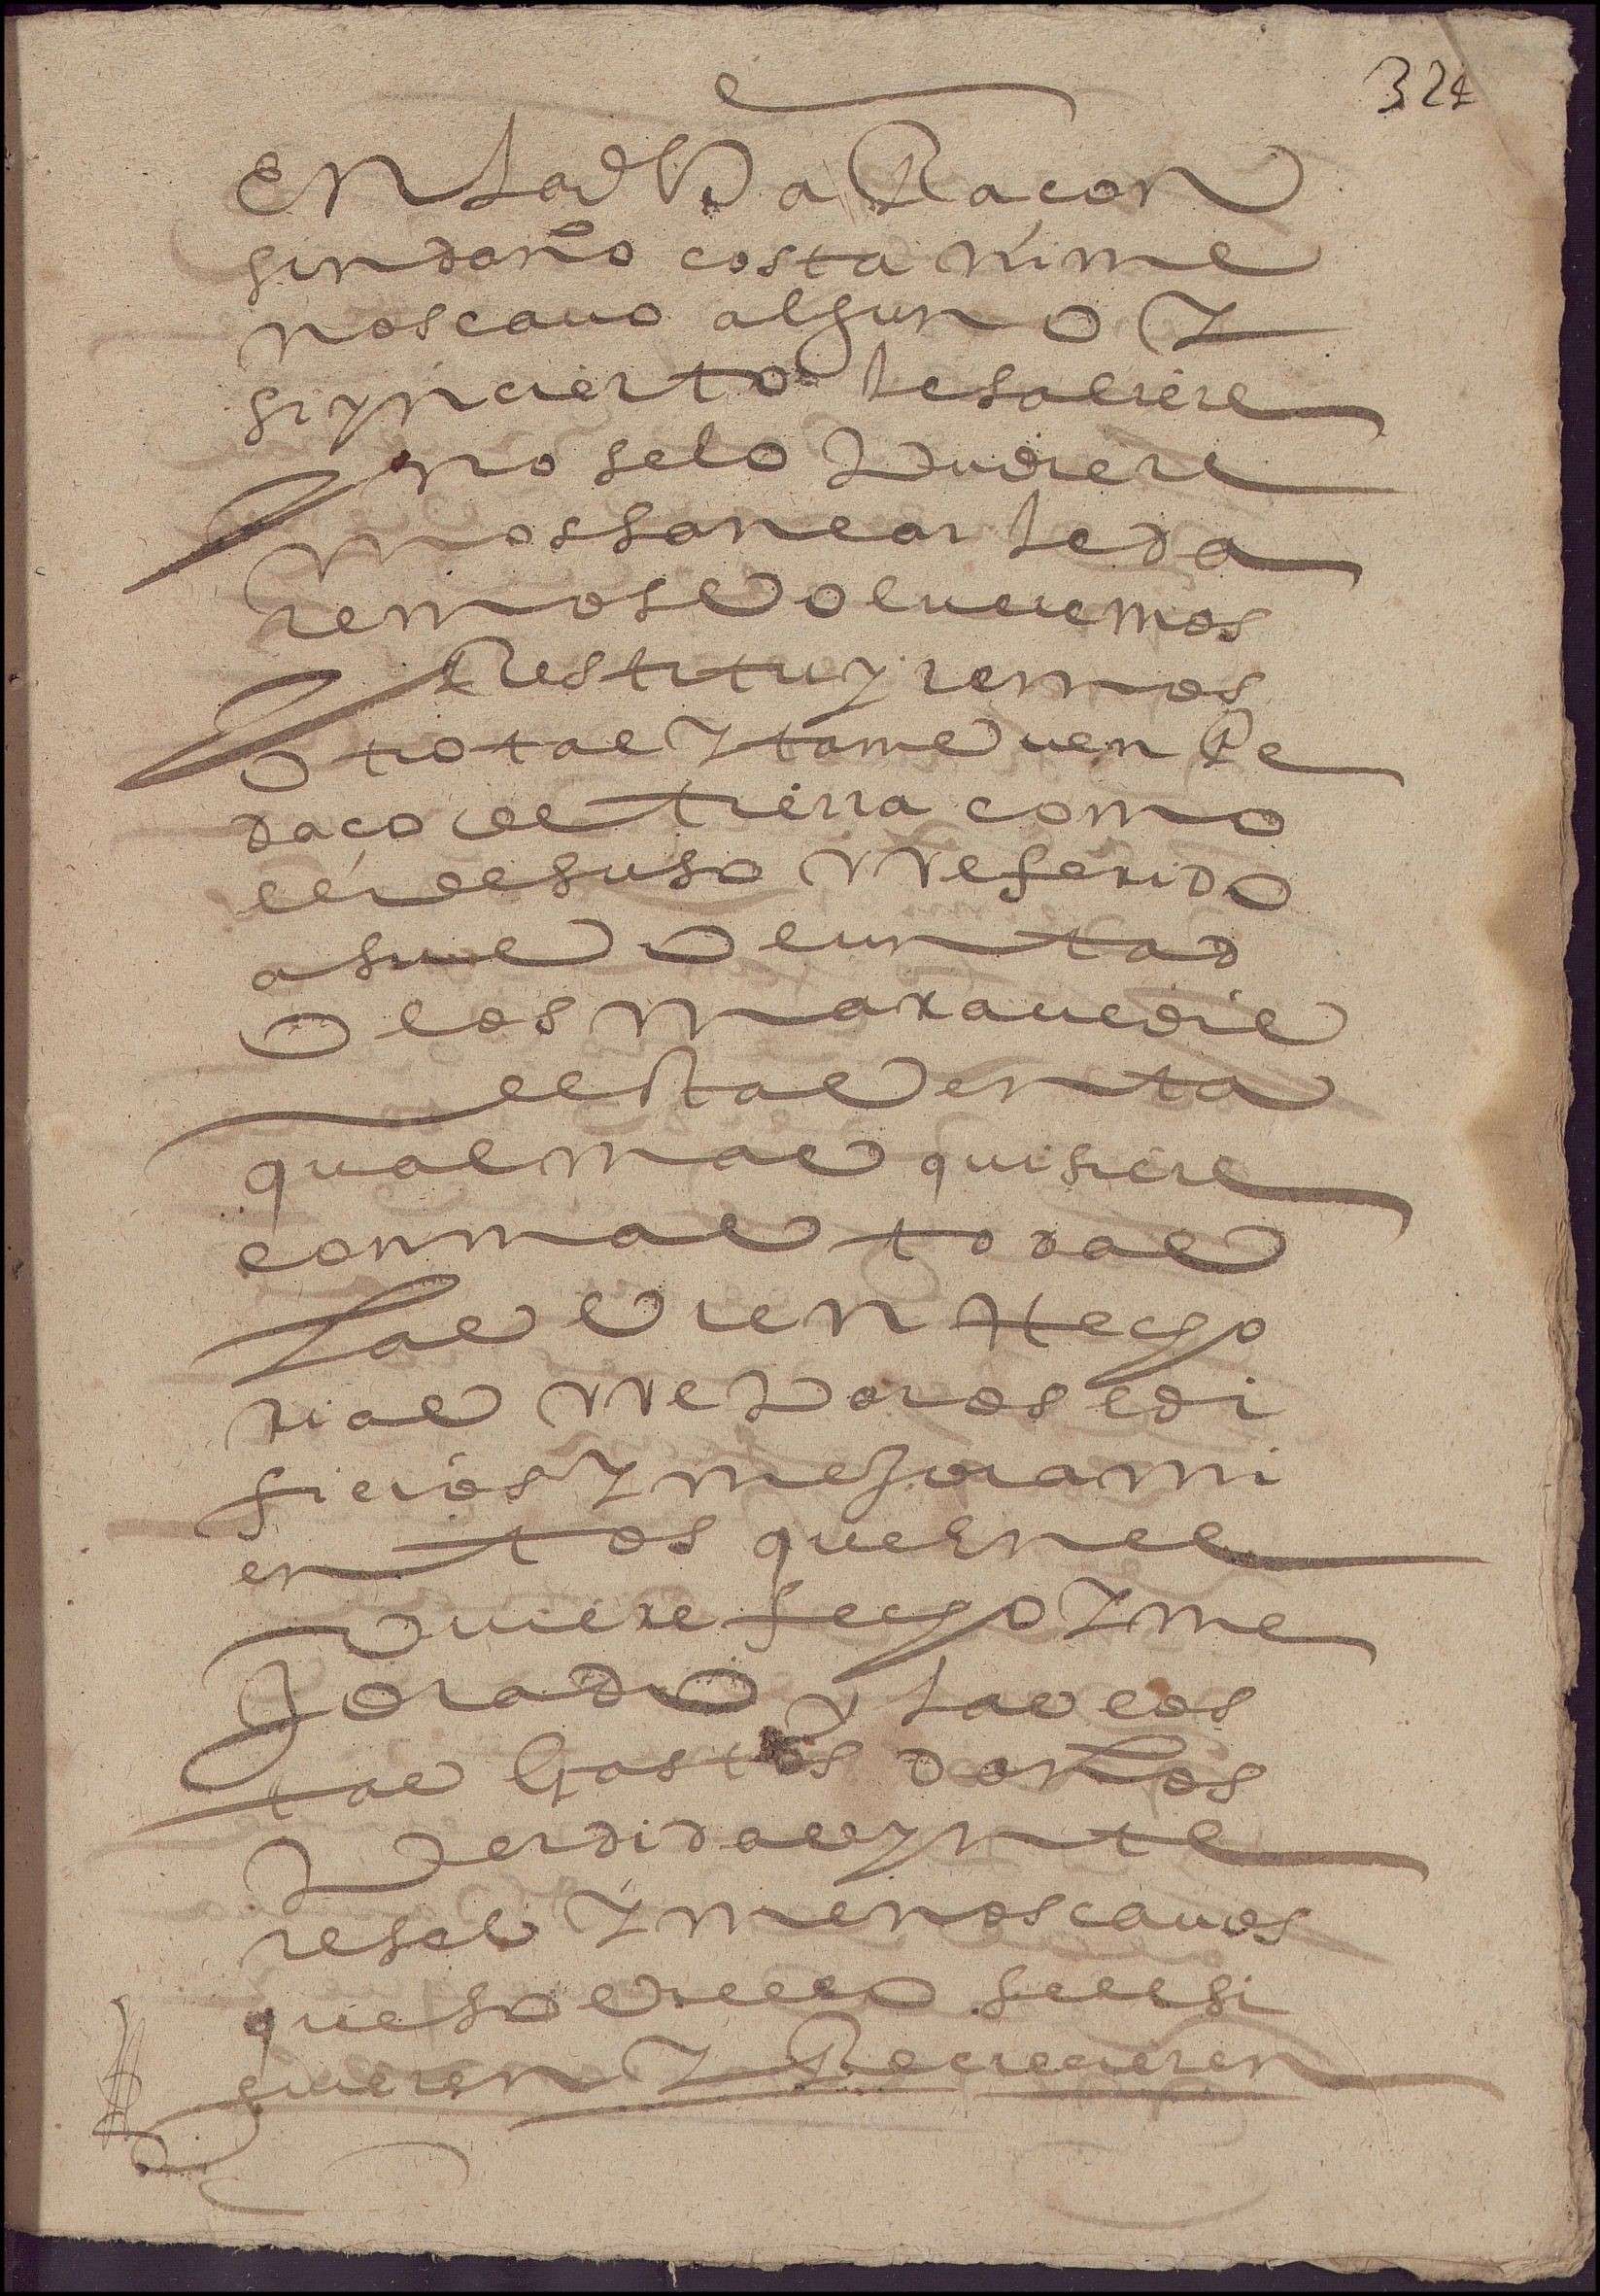 324
En la dha Raçon
sin daño costa ni me
noscauo alguno y
si yncierto le saliere
y no selo pudiere
mos sanear le da
remos e volueremos
y Restituyremos
otro tal y tan buen Pe
daço de tierra como
el de suso rreferido
a su voluntad
o los marauedis
desta venta
qual mas quisiere
con mas todas
las vien hecho
rias rreparos edi
ficios y mejorami
entos que en el
ouiere fecho y me
Jorado y las cos
tas Gastos daños
perdidas ynte
reses y menoscauos
que sobre ello se le si
guieren y Recrecieren